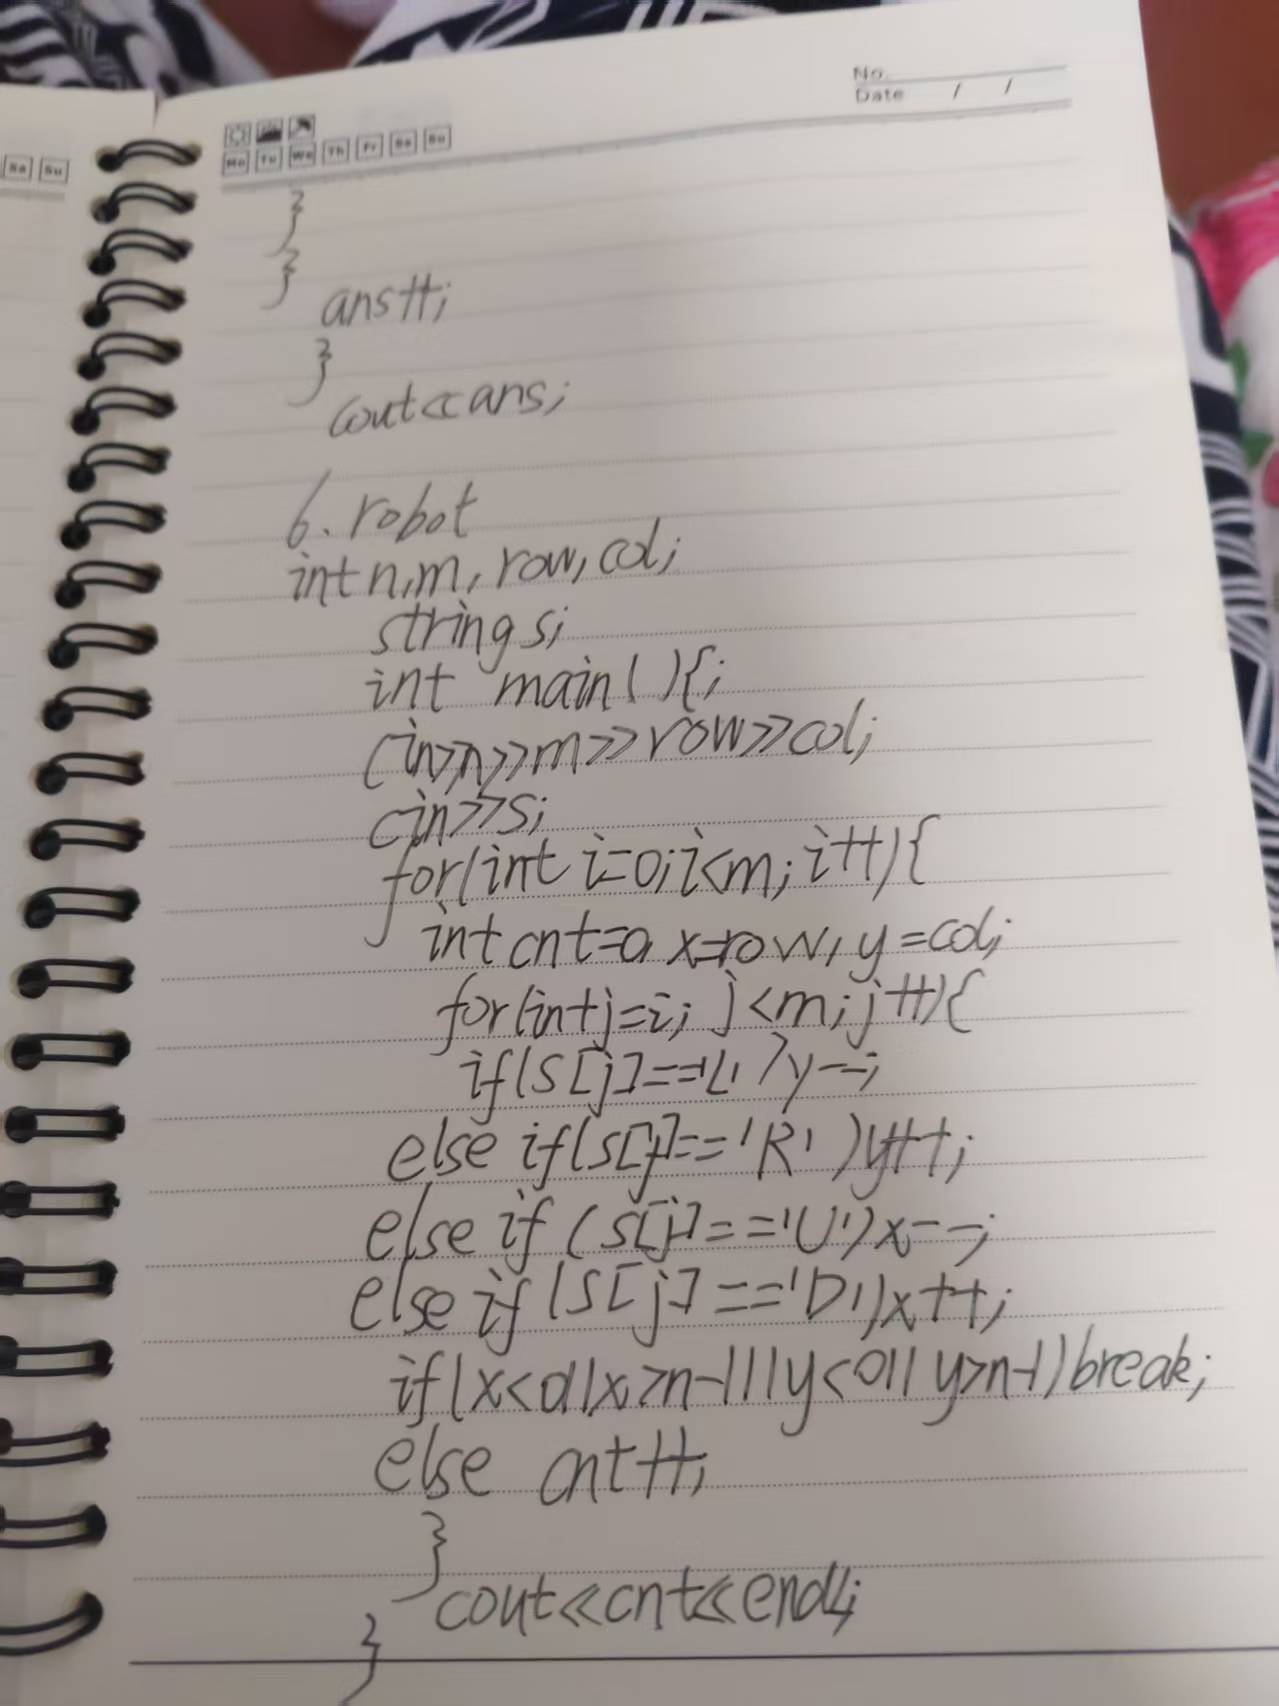 No.
Date / /
Mo Tu We Th Fr Sa Su
Sa Su
}
}
ans++;
}
cout<<ans;
6. robot
int n,m, row, col;
string s;
int main(){;
cin>>n>>m>>row>>col;
cin>>s;
for(int i=0;i<m; i++){
int cnt=0, x=row, y=col;
for(int j=i; j<m; j++){
if(s[j]=='L')y--;
else if(s[j]=='R')y++;
else if (s[j]=='U')x--;
else if (s[j]=='D')x++;
if(x<0||x>n-1||y<0||y>n-1)break;
else cnt++;
}
cout<<cnt<<endl;
}